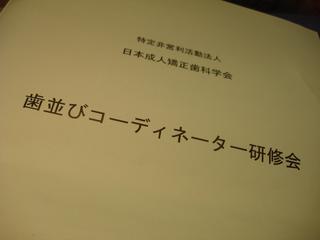 特定非営利活動法人
日本成人矯正歯科学会
歯並びコーディネーター研修会